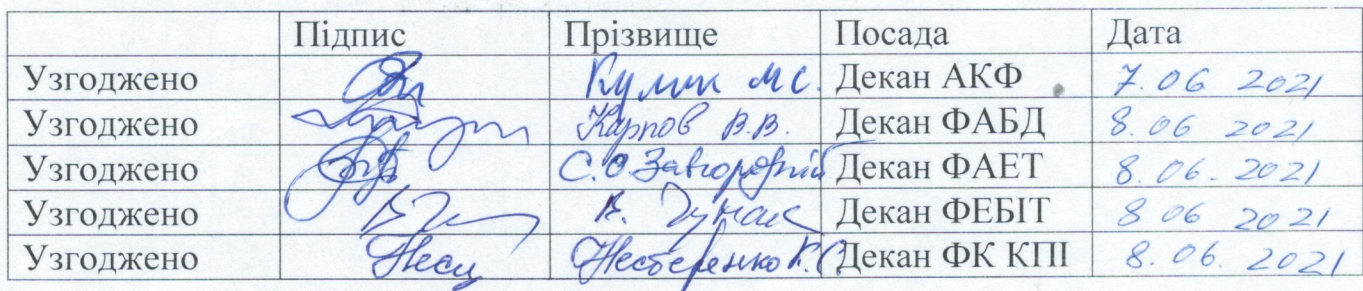 Підпис Прізвище Посада Дата
Узгоджено Кулик М.С. Декан АКФ 7.06 2021
Узгоджено Карпов В.В. Декан ФАБД 8.06 2021
Узгоджено С.О.Завгородній Декан ФАЕТ 8.06.2021
Узгоджено В. Чумак Декан ФЕБІТ 8 06 2021
Узгоджено Нестеренко К.С Декан ФК КПІ 8.06.2021